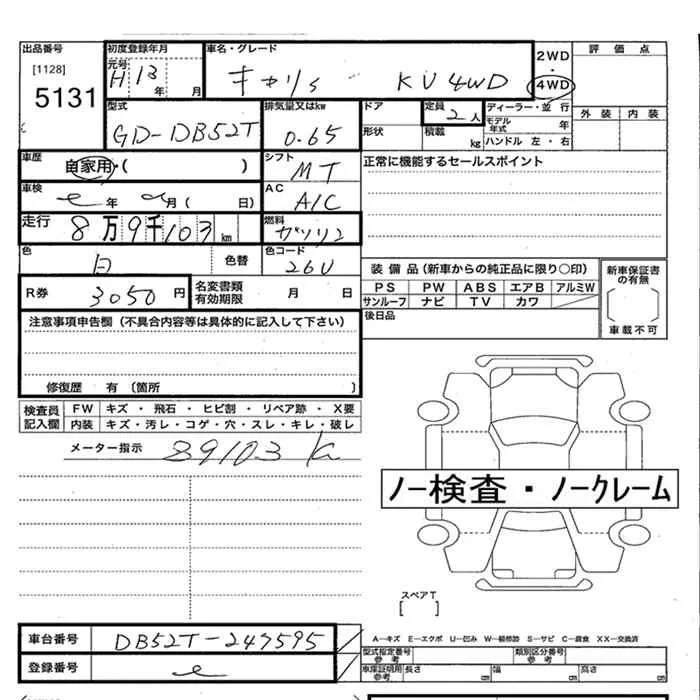 出品番号 初度登録年月 車名・グレード 2WD 評価点
[1128] 元号 H 13 年 月 キャリィ KU 4WD ・ 4WD
5131 型式 排気量又はkw ドア 定員 2人 ディーラー・並行 外装 内装
GD-DB52T 0.65 形状 積載 kg モデル年式 年
ハンドル 左・右
車歴 自家用・( ) シフト MT 正常に機能するセールスポイント
車検 年 月( 日) AC A/C
走行 8万9千103 km 燃料 ガソリン
色 白 色替 色コード 26U 装備品(新車からの純正品に限り○印) 新車保証書の有無
R券 3050円 名変書類有効期限 月 日 PS PW ABS エアB アルミW
サンルーフ ナビ TV カワ 車載不可
注意事項申告欄(不具合内容等は具体的に記入して下さい) 後日品
修復歴 有 〔箇所 〕
検査員記入欄 FW キズ・飛石・ヒビ割・リペア跡・X要
内装 キズ・汚レ・コゲ・穴・スレ・キレ・破レ
メーター指示 89103 K
ノー検査・ノークレーム
スペアT
[ ]
車台番号 DB52T-247595 A―キズ E―エクボ U―凹み W―補修跡 S―サビ C―腐食 XX―交換済
登録番号 型式指定番号 参考 類別区分番号 参考
車庫証明用 参考 長さ cm 幅 cm 高さ cm